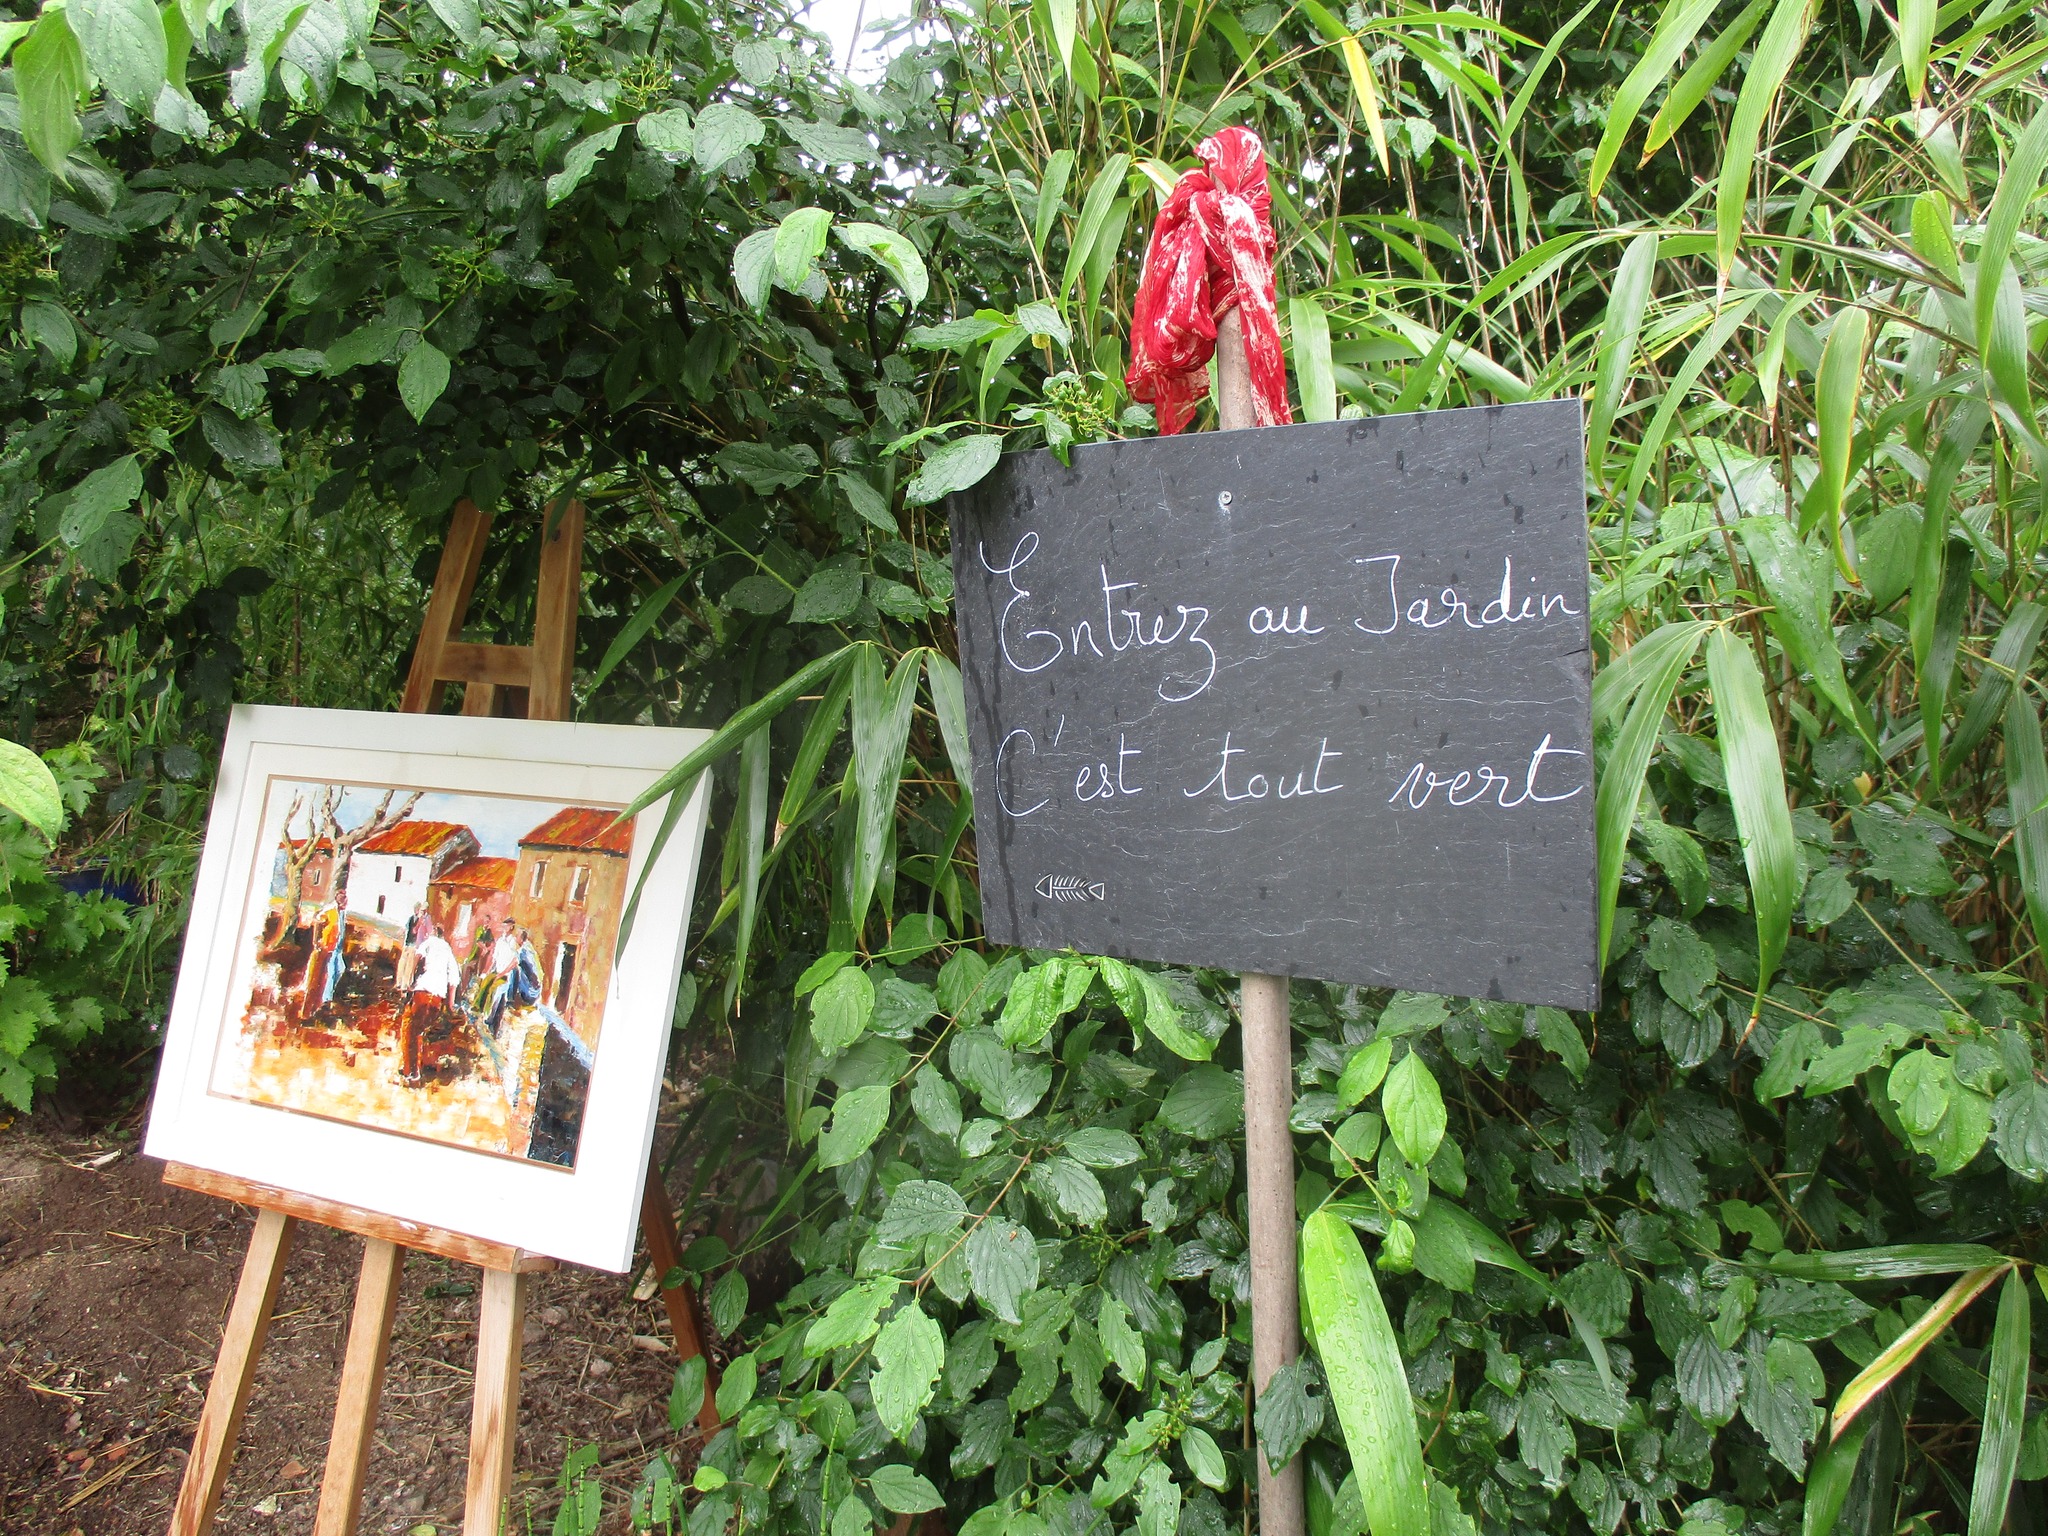 Entrez au Jardin
C'est tout vert